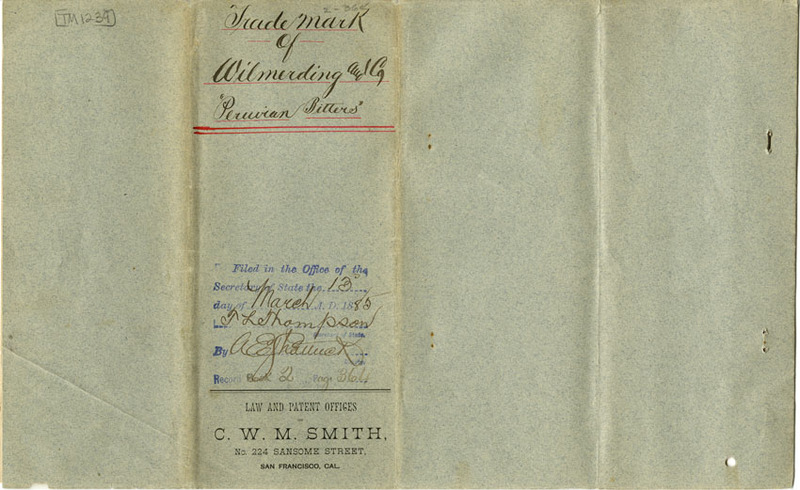 TM1239
2-364
Trade Mark
Of
Wilmerding and Co
"Peruvian Bitters"
Filed in the Office of the
Secretary of State the 13
day of March A.D. 1885
T L Thompson
Secretary of State.
By A E Shattuck
Record Book 2 Page 364
LAW AND PATENT OFFICES
C. W. M. SMITH,
No. 224 SANSOME STREET,
SAN FRANCISCO, CAL.